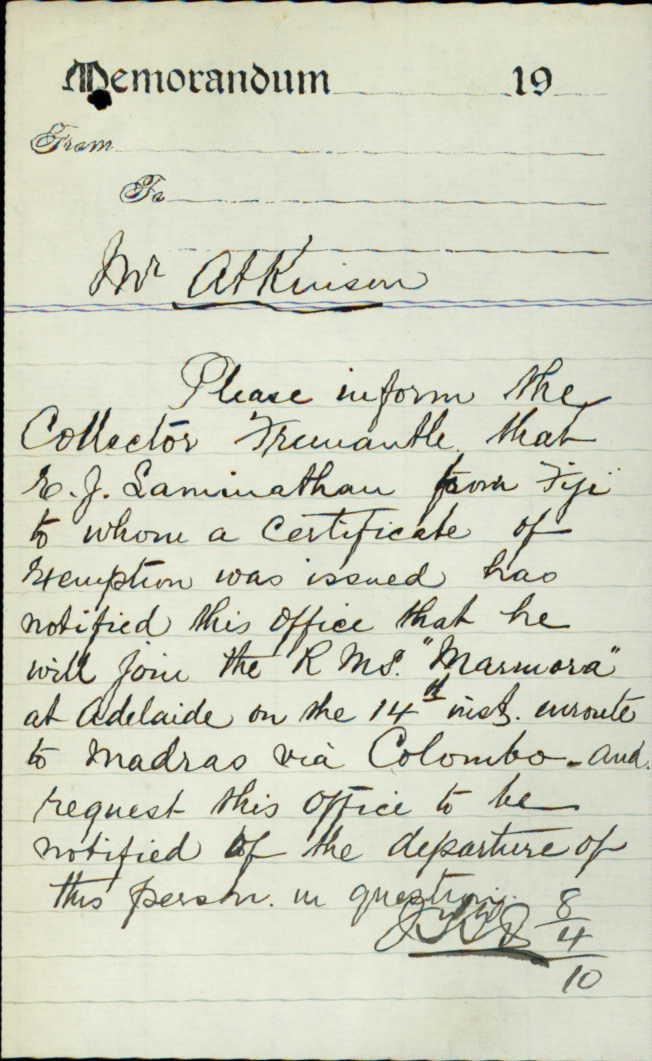 Memorandum 19
From
To
Mr Atkinson
Please inform the
Collector Fremantle that
E. J. Saminathan from Fiji
to whom a Certificate of
Exemption was issued has
notified this office that he
will join the R M S. "Marmora"
at Adelaide on the 14th inst. enroute
to Madras via Colombo - and
request this office to be
notified of the departure of
this person. in question.
8
4
10